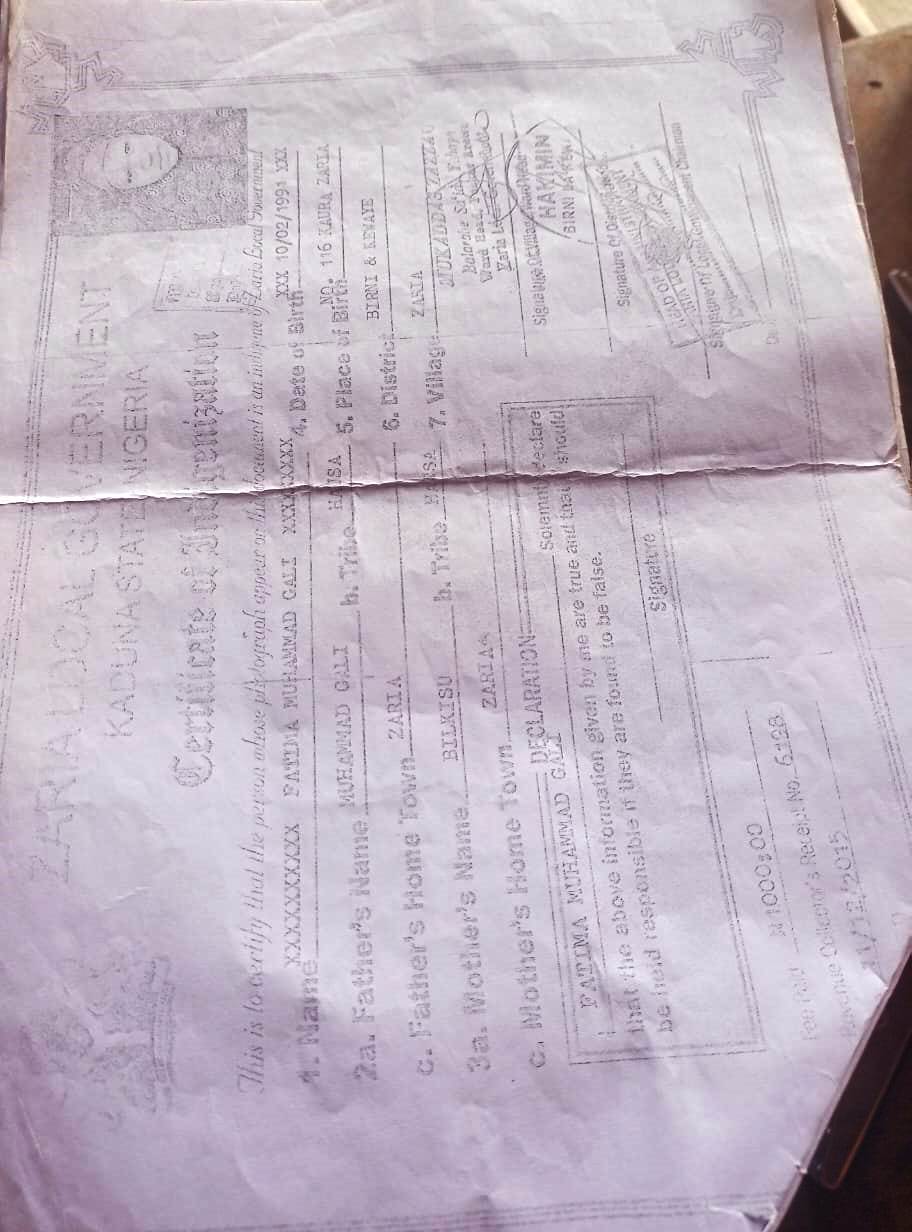 ZARIA LOCAL GOVERNMENT
KADUNA STATE NIGERIA
Certificate of Indigenization
This is to certify that the person whose photograph appear on this document is an indigene of Zaria Local Government
1. Name XXXXXXXXXX FATIMA MUHAMMAD GALI XXXXXXXXX 4. Date of Birth XXX 10/02/1991 XXX
2a. Father's Name MUHAMMAD GALI b. Tribe HAUSA 5. Place of Birth NO. 116 KAURA ZARIA
c. Father's Home Town ZARIA 6. District BIRNI & KEWAYE
3a. Mother's Name BILKISU b. Tribe HAUSA 7. Village ZARIA
c. Mother's Home Town ZARIA
DECLARATION
FATIMA MUHAMMAD GALI Solemnly declare
that the above information given by me are true and that should
be held responsible if they are found to be false.
Signature
Ward Head,
HAKIMIN
BIRNI
Signature Of
Fee Paid ₦1000:00
Revenue Collector's Receipt No. 6128
/12/2015